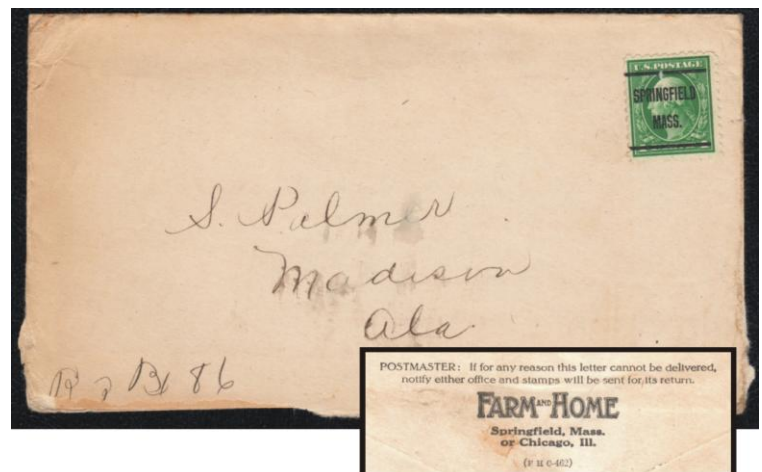 U.S. POSTAGE
SPRINGFIELD
MASS.
S. Palmer
Madison
Ala.
R 2 Bx 86
POSTMASTER: If for any reason this letter cannot be delivered,
notify either office and stamps will be sent for its return.
FARM AND HOME
Springfield, Mass.
or Chicago, Ill.
(F H 6-462)